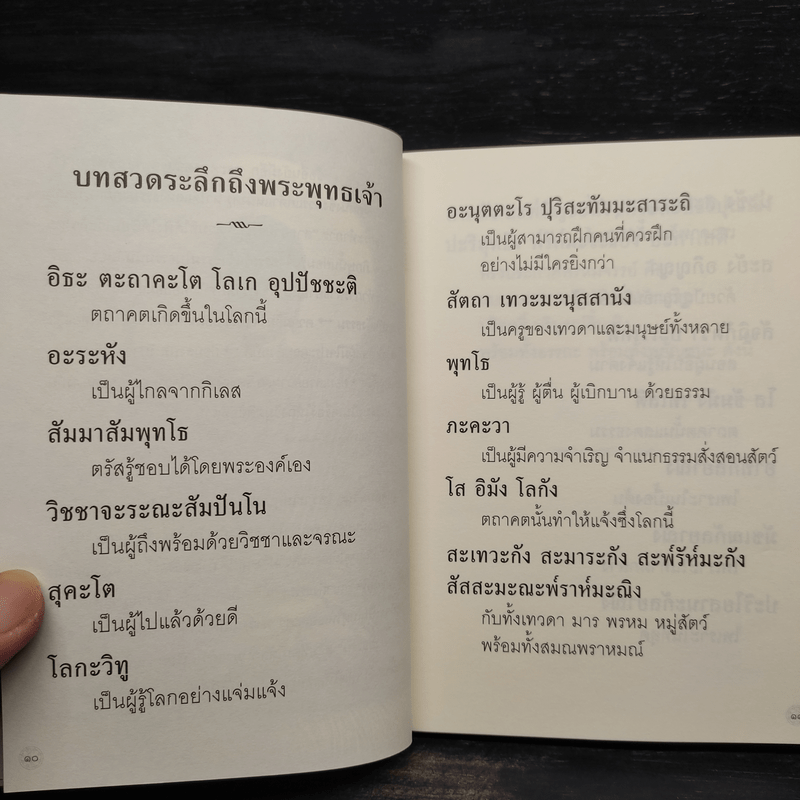 บทสวดระลึกถึงพระพุทธเจ้า
อิธะ ตะถาคะโต โลเก อุปปัชชะติ
ตถาคตเกิดขึ้นในโลกนี้
อะระหัง
เป็นผู้ไกลจากกิเลส
สัมมาสัมพุทโธ
ตรัสรู้ชอบได้โดยพระองค์เอง
วิชชาจะระณะสัมปันโน
เป็นผู้ถึงพร้อมด้วยวิชชาและจรณะ
สุคะโต
เป็นผู้ไปแล้วด้วยดี
โลกะวิทู
เป็นผู้รู้โลกอย่างแจ่มแจ้ง
๑๐
อะนุตตะโร ปุริสะทัมมะสาระถิ
เป็นผู้สามารถฝึกคนที่ควรฝึก
อย่างไม่มีใครยิ่งกว่า
สัตถา เทวะมะนุสสานัง
เป็นครูของเทวดาและมนุษย์ทั้งหลาย
พุทโธ
เป็นผู้รู้ ผู้ตื่น ผู้เบิกบาน ด้วยธรรม
ภะคะวา
เป็นผู้มีความจำเริญ จำแนกธรรมสั่งสอนสัตว์
โส อิมัง โลกัง
ตถาคตนั้นทำให้แจ้งซึ่งโลกนี้
สะเทวะกัง สะมาระกัง สะพ๎รัห๎มะกัง
สัสสะมะณะพ๎ราห๎มะณิง
กับทั้งเทวดา มาร พรหม หมู่สัตว์
พร้อมทั้งสมณพราหมณ์